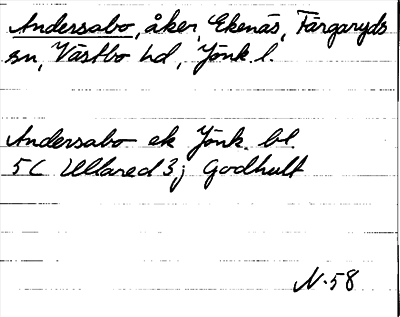 Andersabo, åker, Ekenäs, Färgaryds
sn, Västbo hd, Jönk. l.
Andersabo ek Jönk. bl.
5 C Ullared 3j Godhult
N-58